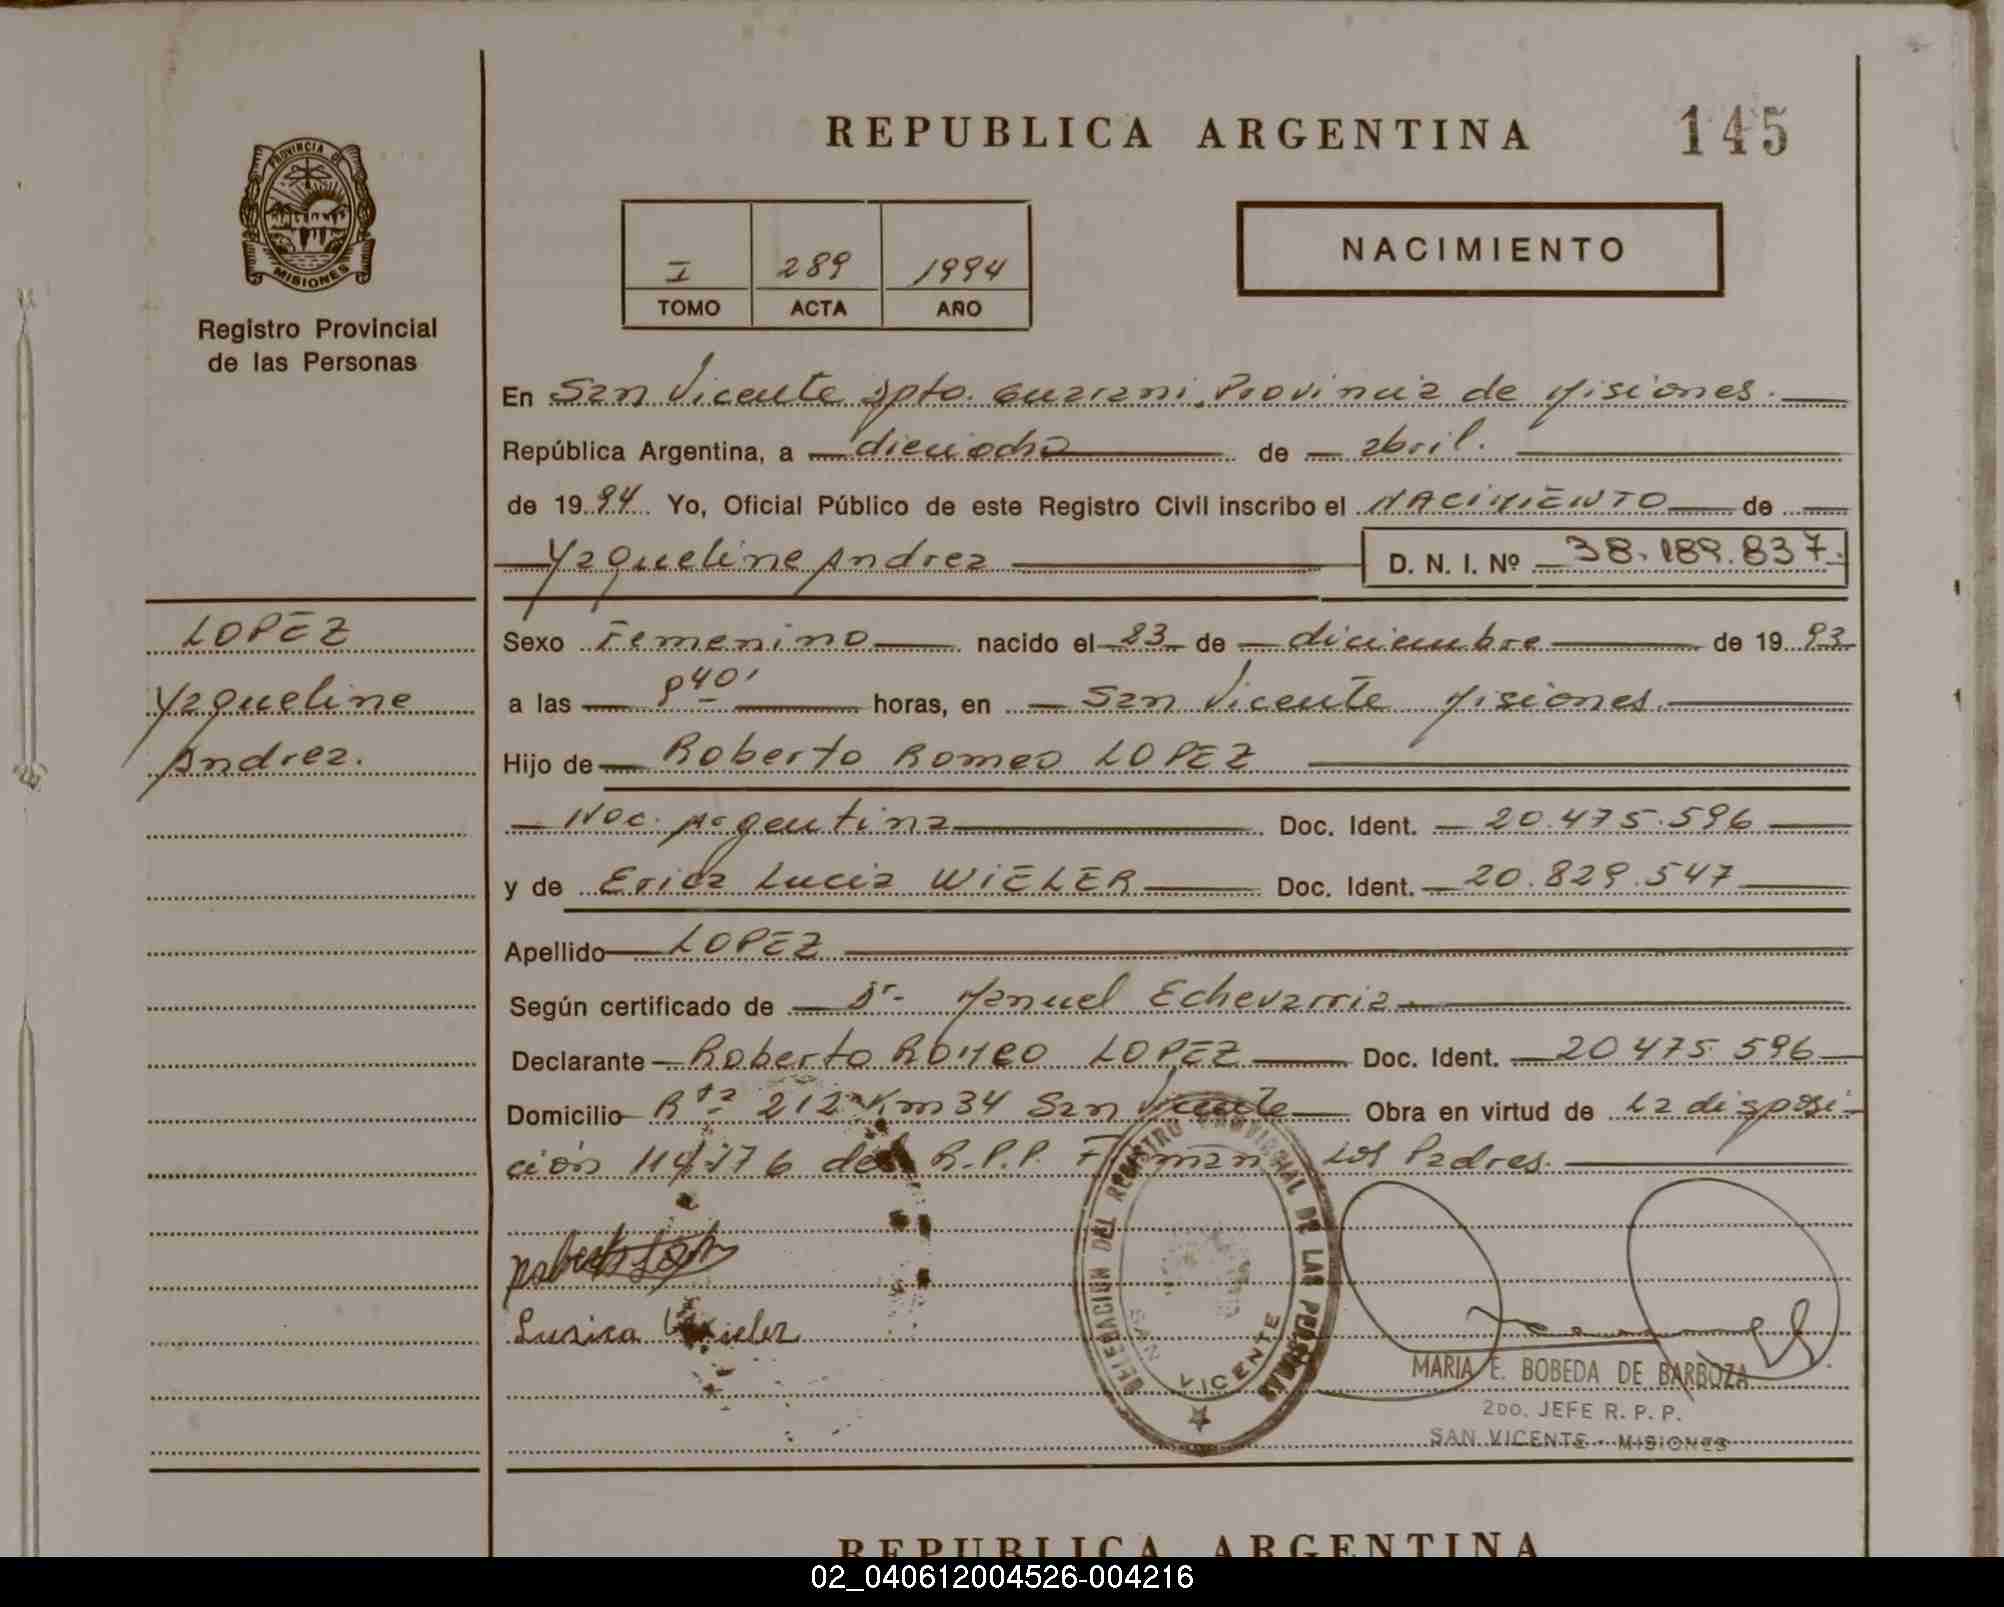 REPUBLICA ARGENTINA 145
PROVINCIA DE
MISIONES
Registro Provincial
de las Personas
I 289 1994
TOMO ACTA AÑO
NACIMIENTO
En San Vicente Dpto. Guarani. Provincia de Misiones.
República Argentina, a dieciocho de abril.
de 1994 Yo, Oficial Público de este Registro Civil inscribo el NACIMIENTO de
Yaqueline Andrea D. N. I. Nº 38.189.837.
LOPEZ
Yaqueline
Andrea.
Sexo Femenino nacido el 23 de diciembre de 1993
a las 8 40' horas, en San Vicente Misiones.
Hijo de Roberto Romeo LOPEZ
Nac. Argentina Doc. Ident. 20.475.596
y de Erica Lucia WIELER Doc. Ident. 20.829.547
Apellido LOPEZ
Según certificado de Dr. Manuel Echevarria
Declarante Roberto ROMEO LOPEZ Doc. Ident. 20 475 596
Domicilio Rta 212 Km 34 San Vicente Obra en virtud de La disposi-
ción 114/76 del R.P.P. Firman Los Padres.
DELEGACION DEL REGISTRO PROVINCIAL DE LAS PERSONAS
SAN VICENTE
MARIA E. BOBEDA DE BARBOZA
2DO. JEFE R. P. P.
SAN VICENTE - MISIONES
REPUBLICA ARGENTINA
02_040612004526-004216